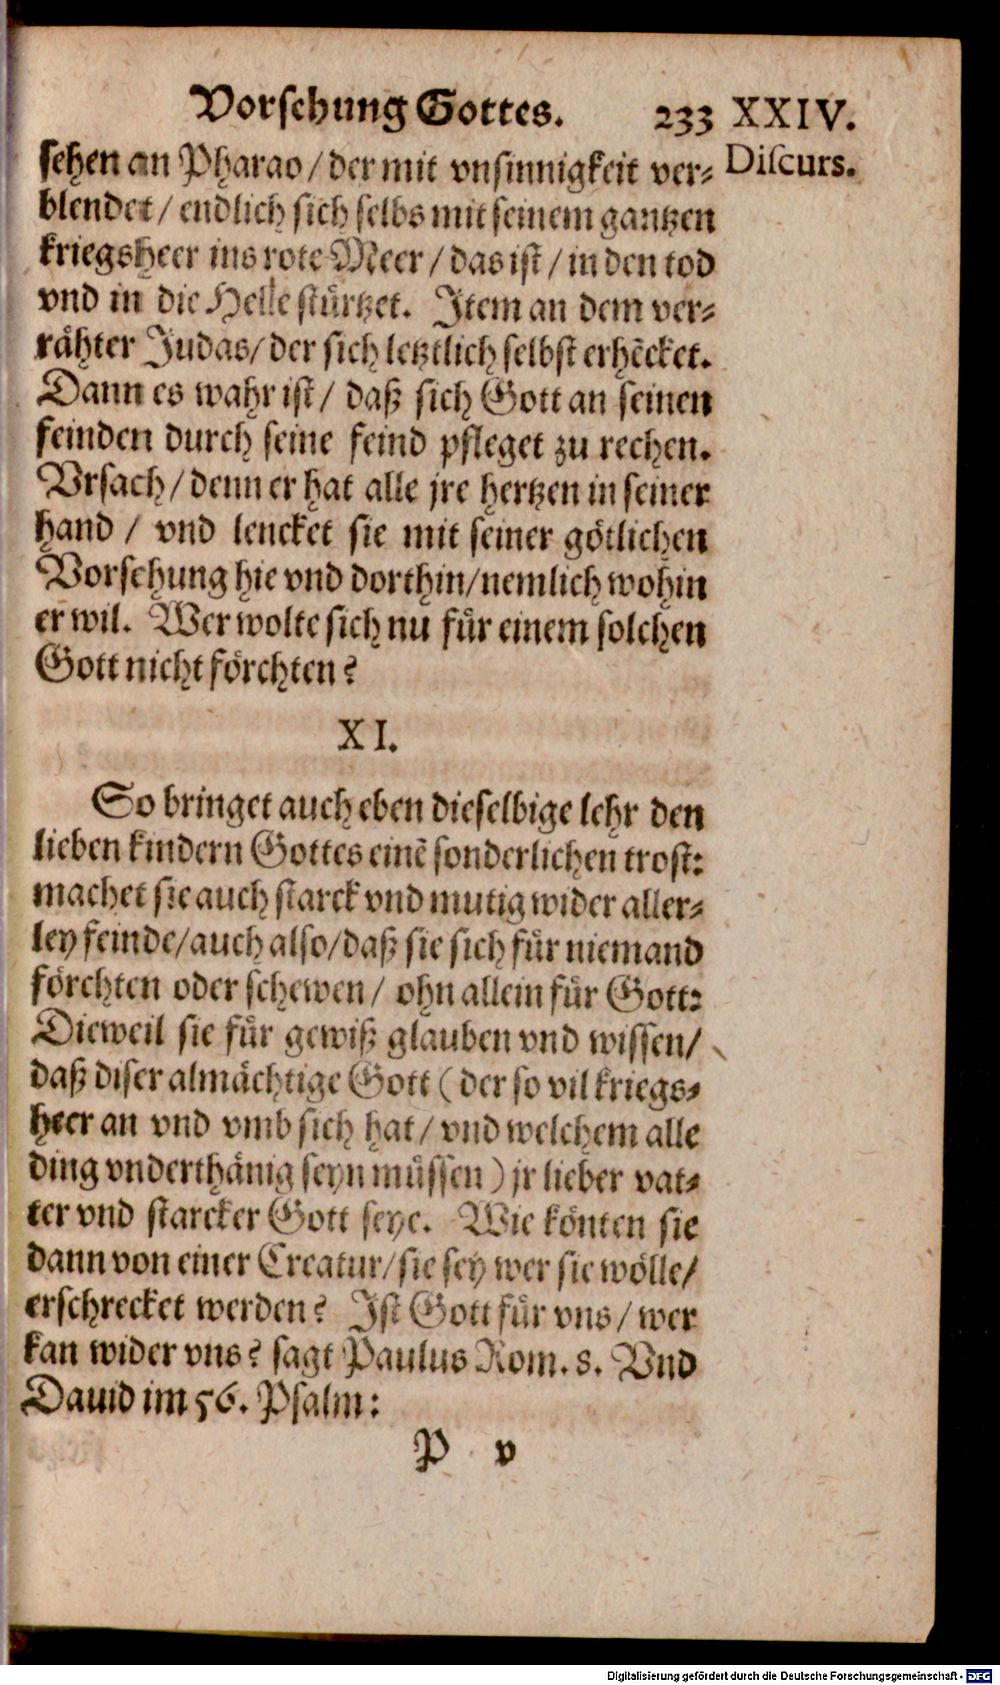 Vorsehung Gottes. 233 XXIV.
Discurs.
sehen an Pharao/ der mit vnsinnigkeit ver-
blendet/ endlich sich selbs mit seinem gantzen
kriegsheer ins rote Meer/ das ist/ in den tod
vnd in die Helle stürtzet. Item an dem ver-
rähter Judas/ der sich letztlich selbst erhēcket.
Dann es wahr ist/ daß sich Gott an seinen
feinden durch seine feind pfleget zu rechen.
Vrsach/ denn er hat alle jre hertzen in seiner
hand/ vnd lencket sie mit seiner götlichen
Vorsehung hie vnd dorthin/ nemlich wohin
er wil. Wer wolte sich nu für einem solchen
Gott nicht förchten?
XI.
So bringet auch eben dieselbige lehr den
lieben kindern Gottes einē sonderlichen trost:
machet sie auch starck vnd mutig wider aller-
ley feinde/ auch also/ daß sie sich für niemand
förchten oder schewen/ ohn allein für Gott:
Dieweil sie für gewiß glauben vnd wissen/
daß diser almächtige Gott (der so vil kriegs-
heer an vnd vmb sich hat/ vnd welchem alle
ding vnderthänig seyn müssen) jr lieber vat-
ter vnd starcker Gott seye. Wie könten sie
dann von einer Creatur/ sie sey wer sie wölle/
erschrecket werden? Ist Gott für vns/ wer
kan wider vns? sagt Paulus Rom. 8. Vnd
Dauid im 56. Psalm:
P v
Digitalisierung gefördert durch die Deutsche Forschungsgemeinschaft - DFG